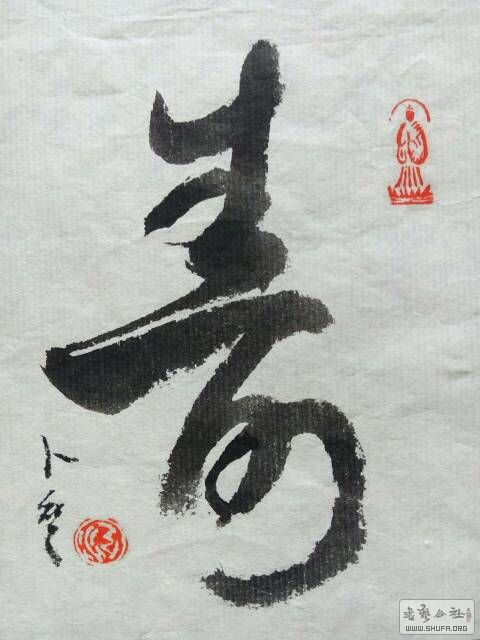 寿
卜
书艺公社
WWW.SHUFA.ORG